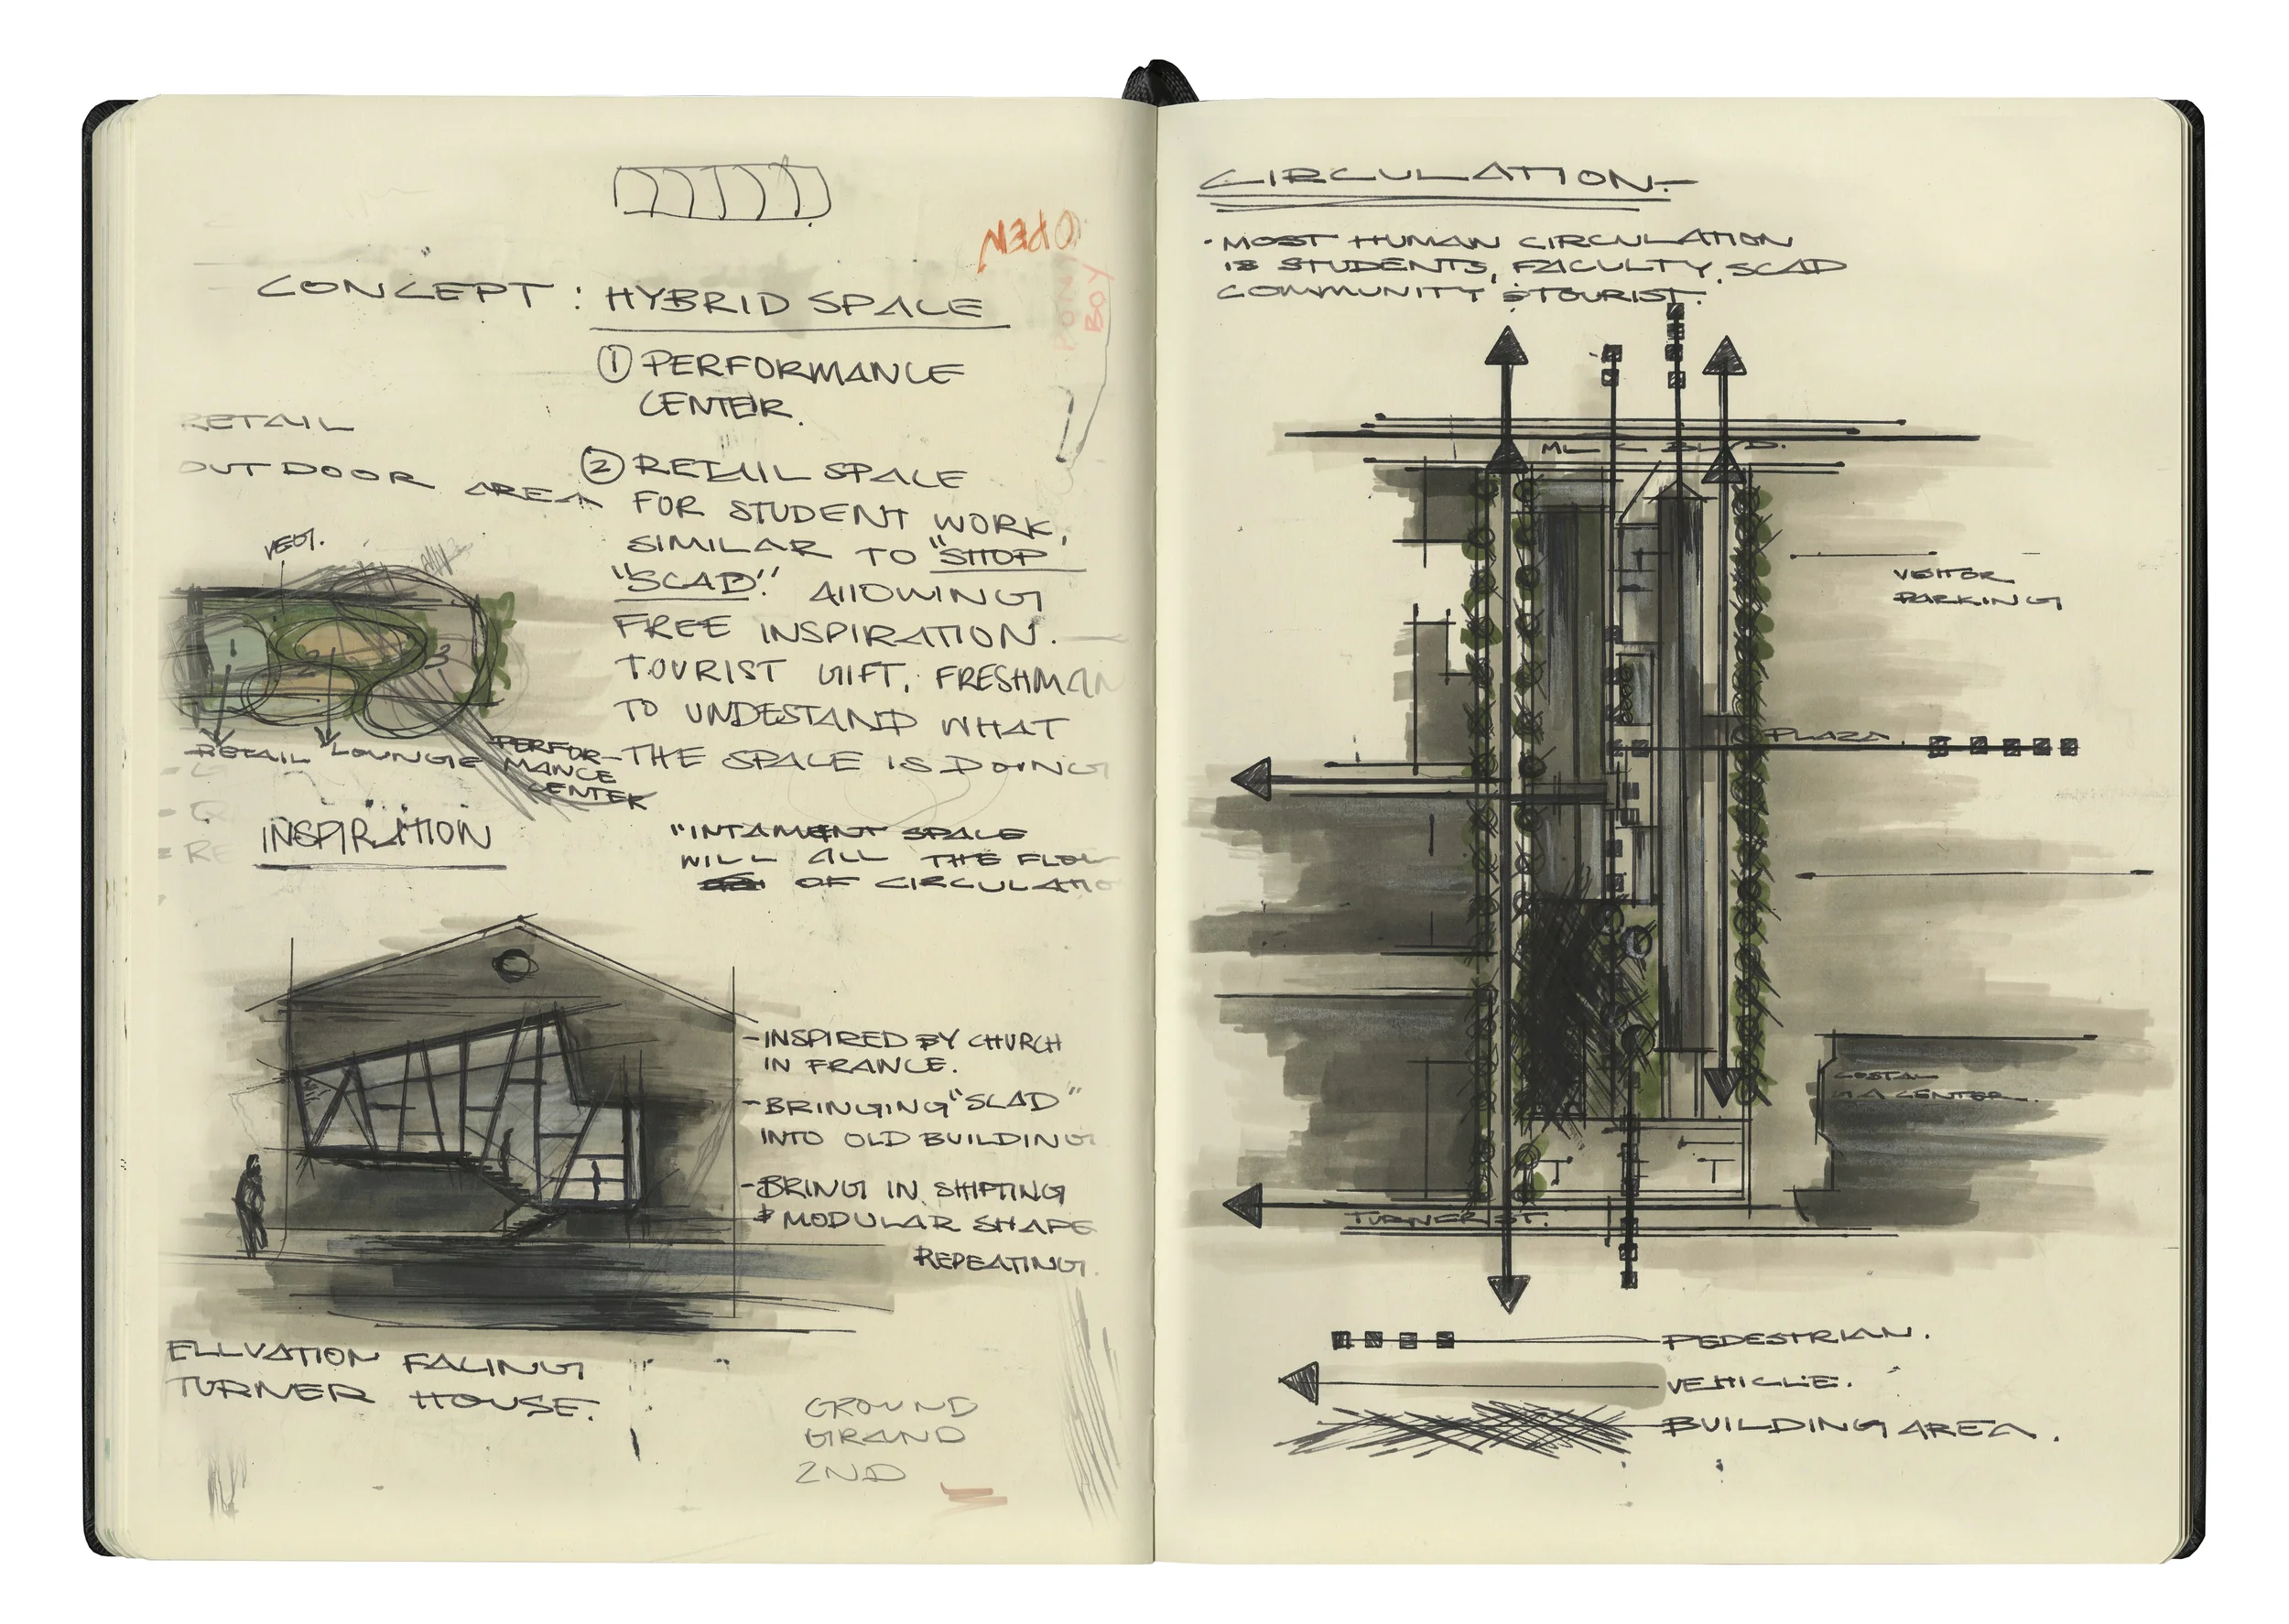 OPEN
PONY
BOY
CONCEPT : HYBRID SPACE
① PERFORMANCE
CENTER.
RETAIL
OUTDOOR AREA
② RETAIL SPACE
FOR STUDENT WORK,
SIMILAR TO "SHOP
"SCAD". AllOWING
FREE INSPIRATION.
TOURIST GIFT, FRESHMAN
TO UNDESTAND WHAT
THE SPACE IS DOING
VEG.
1
2
3
RETAIL LOUNGE PERFOR-
MANCE
CENTER
INSPIRATION
"INTAMENT SPACE
WILL ALL THE FLOW
OF CIRCULATIO
- INSPIRED BY CHURCH
IN FRANCE.
- BRINGING "SCAD"
INTO OLD BUILDING
- BRING IN SHIFTING
& MODULAR SHAPE
REPEATING.
ELLVATION FACING
TURNER HOUSE.
GROUND
GRAND
2ND
CIRCULATION.
· MOST HUMAN CIRCULATION
IS STUDENTS, FACULTY, SCAD
COMMUNITY & TOURIST.
MLK BLVD.
VISITOR
PARKING
PLAZA.
COSTAL
GA CENTER.
TURNER ST.
PEDESTRIAN.
VEHICLE.
BUILDING AREA.